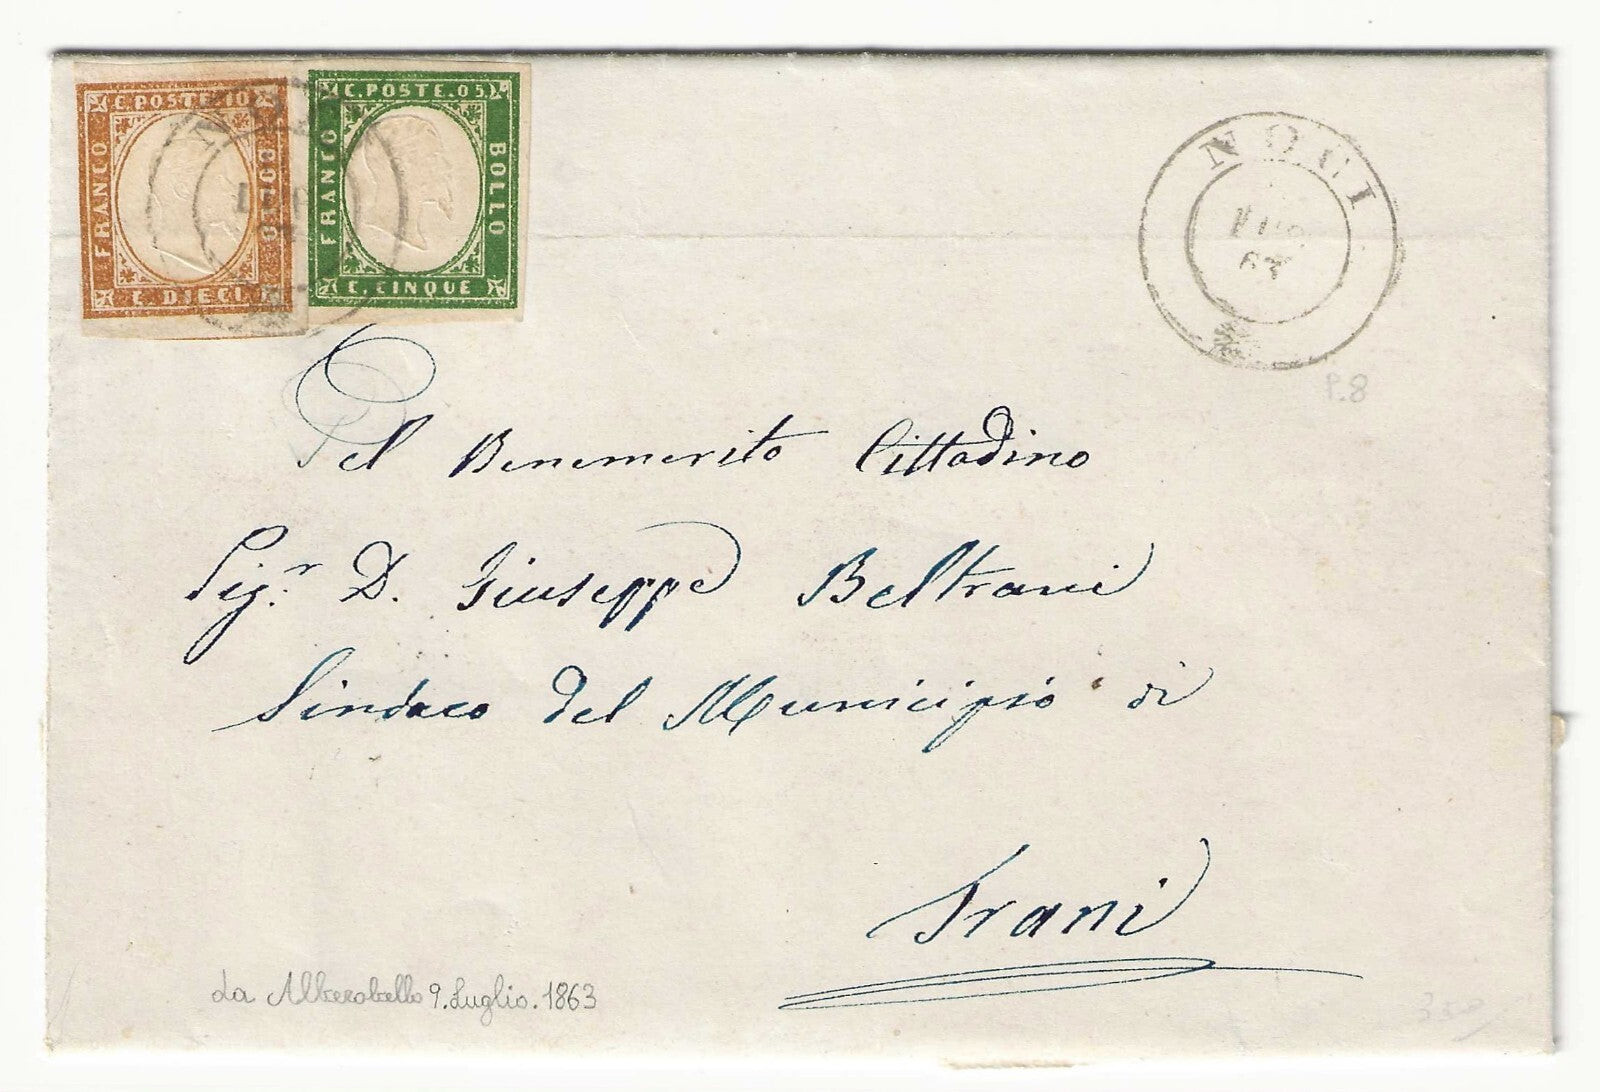 C. POSTE. 10
FRANCO
BOLLO
C. DIECI
C. POSTE. 05.
FRANCO
BOLLO
C. CINQUE
NOCI
LUG
63
P.8
Pel Benemerito Cittadino
Sigr. D. Giuseppe Beltrani
Sindaco del Municipio di
Trani
da Alberobello 9. Luglio. 1863